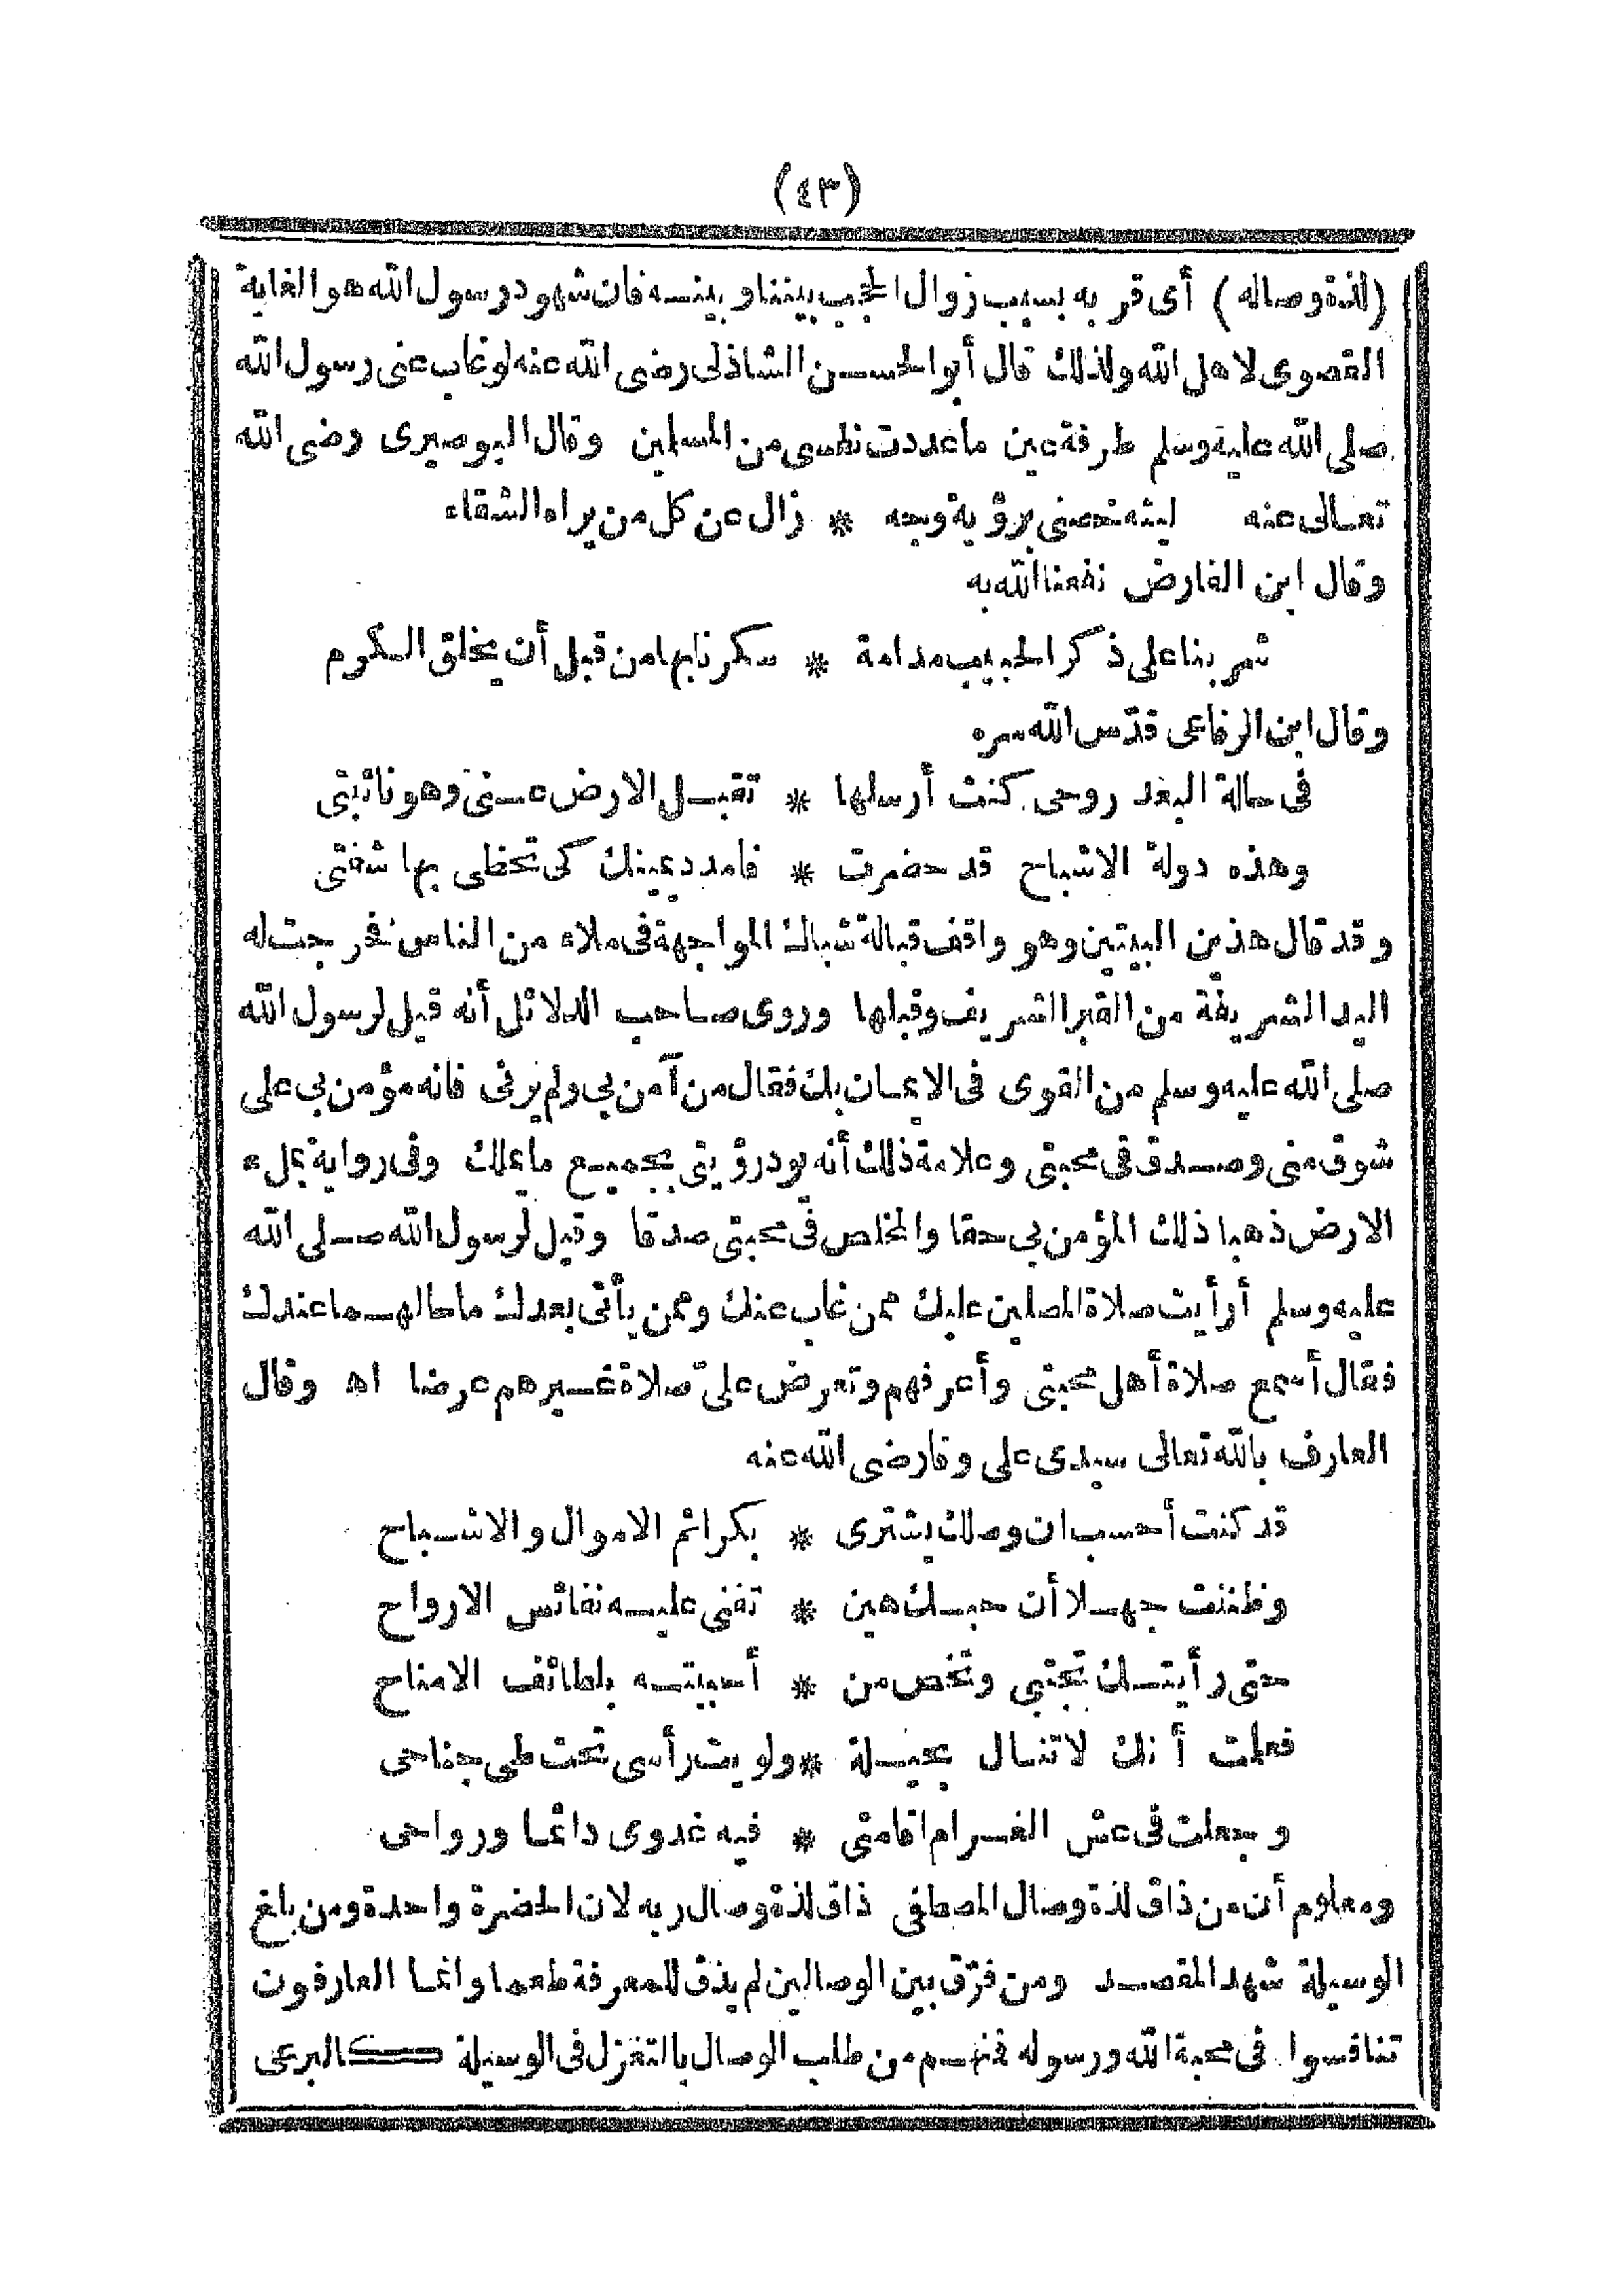 (٤٣)
(لذة وصاله) أى قربه بسبب زوال الحجب بيننا وبينه فان شهود رسول الله هو الغاية
القصوى لاهل الله ولذلك قال أبو الحسن الشاذلى رضى الله عنه لو غاب عنى رسول الله
صلى الله عليه وسلم طرفة عين ما عددت نفسى من المسلمين وقال البوصيرى رضى الله
تعالى عنه ليته خصنى برؤية وجه * زال عن كل من يراه الشقاء
وقال ابن الفارض نفعنا الله به
شربنا على ذكر الحبيب مدامة * سكرنا بها من قبل أن يخلق الكرم
وقال ابن الرفاعى قدّس الله سره
فى حالة البعد روحى كنت أرسلها * تقبل الارض عنى وهو نائبتى
وهذه دولة الاشباح قد حضرت * فامدد يمينك كى تحظى بها شفتى
وقد قال هذين البيتين وهو واقف قبالة شباك المواجهة فى ملاء من الناس فخرجت له
اليد الشريفة من القبر الشريف وقبلها وروى صاحب الدلائل أنه قيل لرسول الله
صلى الله عليه وسلم من القوى فى الايمان بك فقال من آمن بى ولم يرنى فانه مؤمن بى على
شوق منى وصدق فى محبتى وعلامة ذلك أنه يود رؤيتى بجميع ما يملك وفى رواية بملء
الارض ذهبا ذلك المؤمن بى حقا والمخلص فى محبتى صدقا وقيل لرسول الله صلى الله
عليه وسلم أرأيت صلاة المصلين عليك ممن غاب عنك وممن يأتى بعدك ما حالهما عندك
فقال أسمع صلاة أهل محبتى وأعرفهم وتعرض علىّ صلاة غيرهم عرضا اه وقال
العارف بالله تعالى سيدى على وفا رضى الله عنه
قد كنت أحسب ان وصلك يشترى * بكرائم الاموال والاشباح
وظننت جهلا أن حبك هين * تفنى عليه نفائس الارواح
حتى رأيتك تجتبى وتخص من * أحببته بلطائف الامناح
فعلمت أنك لا تنال بحيلة * ولويت رأسى تحت طى جناحى
وجعلت فى عش الغرام اقامتى * فيه غدوى دائما ورواحى
ومعلوم أن من ذاق لذة وصال المصطفى ذاق لذة وصال ربه لان الحضرة واحدة ومن بلغ
الوسيلة شهد المقصد ومن فرّق بين الوصالين لم يذق للمعرفة طعما وانما العارفون
تنافسوا فى محبة الله ورسوله فمنهم من طلب الوصال بالتغزل فى الوسيلة كالبرعى